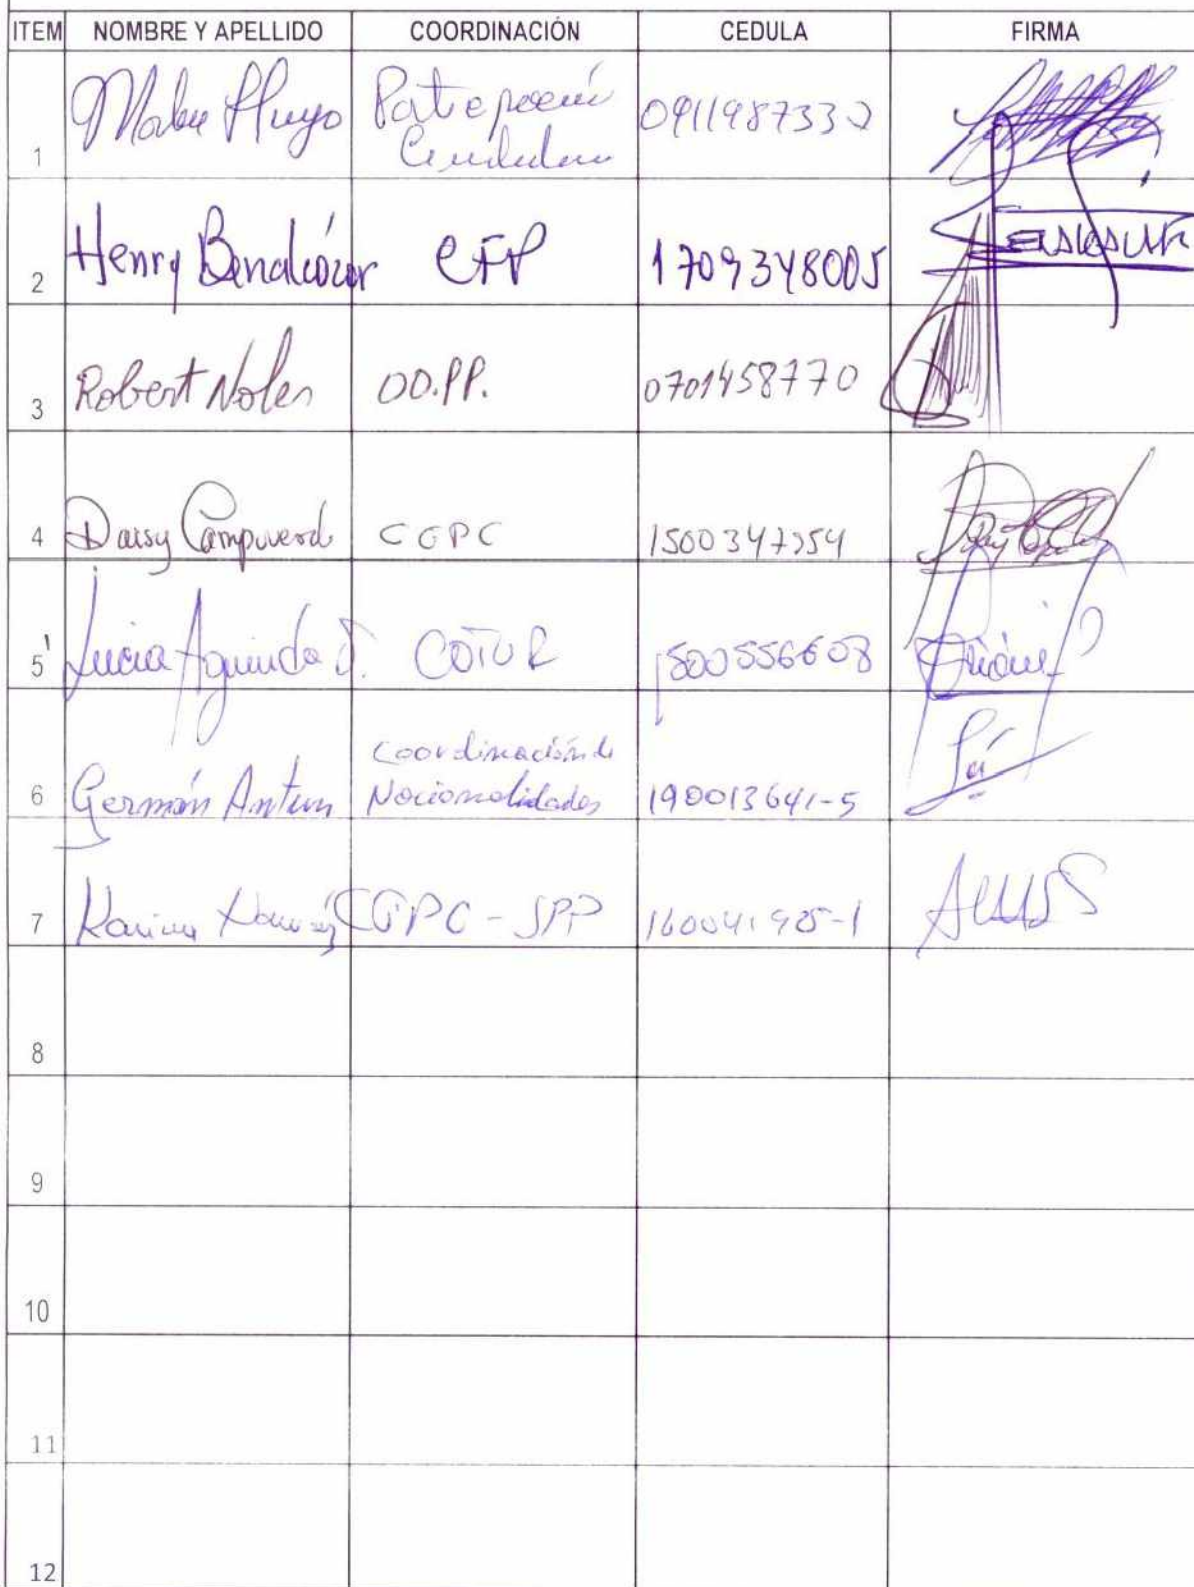 ITEM NOMBRE Y APELLIDO COORDINACIÓN CEDULA FIRMA
1 Hugo 0911987332
2 Henry Benalcázar CFP 1709348005
3 Robert Noles OO.PP. 0701458770
4 Daisy Campoverd CGPC 1500347254
5 Lucia Aguinda J. COTUR 1500556608
6 Germán Antun Coordinación de
Nacionalidades 190013641-5
7 Karina CGPC - SPP 160041905-1
8
9
10
11
12